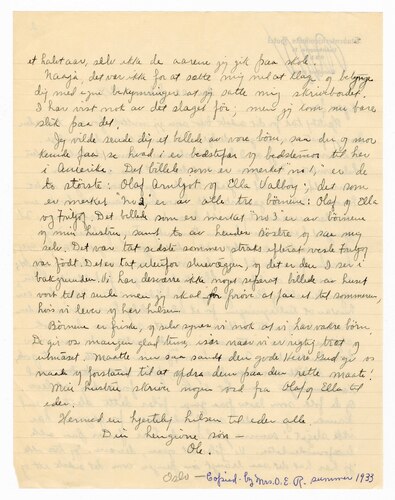 et halvt aar, selv ikke de aarene jeg gik paa skole.
Naaja, det var ikke for at sætte mig ned at klage og bebyrde
dig med egne bekymringer at jeg satte mig skrivebordet.
I har vist nok av det slaget før; men jeg kom nu bare
slik paa det.
Jeg vilde sende dig et billede av vore børn, saa du og mor
kunde faa se hvad I er bedstefar og bedstemor til her
i Amerika. Det billede som er merket "no 1," er de
to største: Olaf Arnljot og Ella Valborg; det som
er merket "No 2" er av alle tre børnene: Olaf og Ella
og Frithjof. Det billede som er merket "No 3" er av børnene
og min hustru, samt to av hendes søstre og saa mig
selv. Det var tat sidste sommer straks efterat vesle Frithjof
var født. Det er tat utenfor stuevæggen, og det er den I ser i
bakgrunden. Vi har desværre ikke noget separat billede av huset
vort til at sende men jeg skal prøve at faa et til sommeren,
hvis vi lever og har helsen.
Børnene er friske, og selv synes vi nok at vi har vakre børn.
De gir os mangen glad stund, især naar vi er rigtig træt og
utmattet. Maatte nu saa sandt den gode Herre Gud gi os
naade og forstand til at opdra dem paa den rette maate!
Min hustru skriver nogen ord fra Olaf og Ella til
eder.
Hermed en hjertelig hilsen til eder alle.
Din hengivne søn —
Ole.
Oslo — Copied by Mrs. O. E. R. summer 1933